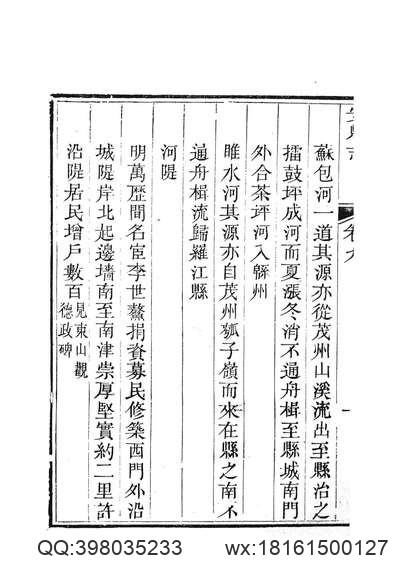 安縣志
卷九
一
蘇包河一道其源亦從茂州山溪流出至縣治之
擂鼓坪成河而夏漲冬消不通舟楫至縣城南門
外合茶坪河入緜州
雎水河其源亦自茂州瓠子嶺而來在縣之南不
通舟楫流歸羅江縣
河隄
明萬歷間名宦李世鰲捐資募民修築西門外沿
城隄岸北起邊墻南至南津崇厚堅實約二里許
沿隄居民增戶數百見東山觀德政碑
QQ:398035233 wx:18161500127